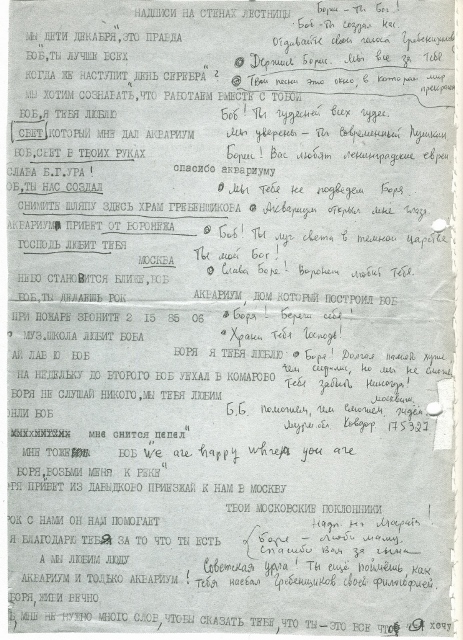 НАДПИСИ НА СТЕНАХ ЛЕСТНИЦЫ
Боря - ты Бог!
Боб - ты создал нас.
МЫ ДЕТИ ДЕКАБРЯ", ЭТО ПРАВДА
Отдавайте свои голоса Гребенщикову
БОБ, ТЫ ЛУЧШЕ ВСЕХ
Держись Борис. Мы все за тебя
КОГДА ЖЕ НАСТУПИТ "ДЕНЬ СЕРЕБРА"?
Твои песни это окно, в которое мир
МЫ ХОТИМ СОЗНАВАТЬ, ЧТО РАБОТАЕМ ВМЕСТЕ С ТОБОЙ
БОБ, Я ТЕБЯ ЛЮБЛЮ
Боб! Ты чудесней всех чудес.
СВЕТ, КОТОРЫЙ МНЕ ДАЛ АКВАРИУМ
Мы уверены - Ты современный Пушкин
БОБ, СВЕТ В ТВОИХ РУКАХ
Борис! Вас любят ленинградские евреи
СЛАВА Б.Г. УРА!
спасибо аквариуму
ОБ, ТЫ НАС СОЗДАЛ
Мы тебя не подведем Боря.
СНИМИТЕ ШЛЯПУ ЗДЕСЬ ХРАМ ГРЕБЕНЩИКОВА
Аквариум открыл мне глаза
АКВАРИУМ ПРИВЕТ ОТ ВОРОНЕЖА
Боб! Ты луч света в темном царстве
ГОСПОДЬ ЛЮБИТ ТЕБЯ
Ты мой Бог!
МОСКВА
Слава Боре! Воронеж любит тебя.
НЕБО СТАНОВИТСЯ БЛИЖЕ, БОБ
БОБ, ТЫ ДЕЛАЕШЬ РОК
АКВАРИУМ, ДОМ КОТОРЫЙ ПОСТРОИЛ БОБ
ПРИ ПОЖАРЕ ЗВОНИТЕ 2 15 85 06
Боря! Береги себя!
МУЗ. ШКОЛА ЛЮБИТ БОБА
Храни тебя Господь!
АЙ ЛАВ Ю БОБ
БОРЯ Я ТЕБЯ ЛЮБЛЮ
Боря! Долгая память хуже
чем сифилис, но мы не сможем
НА НЕДЕЛЬКУ ДО ВТОРОГО БОБ УЕХАЛ В КОМАРОВО
Тебя забыть никогда!
БОРЯ НЕ СЛУШАЙ НИКОГО, МЫ ТЕБЯ ЛЮБИМ
москвичи.
ОНЛИ БОБ
Б.Б. поможем, чем сможем.
Ковдор 175327
мне снится пепел"
МНЕ ТОЖЕ
БОБ "We are happy where you are
БОРЯ, ВОЗЬМИ МЕНЯ К РЕКЕ"
ОРЯ ПРИВЕТ ИЗ ДАВЫДКОВО ПРИЕЗЖАЙ К НАМ В МОСКВУ
ТВОИ МОСКОВСКИЕ ПОКЛОННИКИ !
РОК С НАМИ ОН НАМ ПОМОГАЕТ
Я БЛАГОДАРЮ ТЕБЯ ЗА ТО ЧТО ТЫ ЕСТЬ
Боря - люби маму.
Спасибо Вам за сына
А МЫ ЛЮБИМ ЛЮДУ
Советская урла! Ты ещё поймёшь как
АКВАРИУМ И ТОЛЬКО АКВАРИУМ !
Тебя наебал Гребенщиков своей философией.
БОРЯ, ЖИВИ ВЕЧНО
Б МНЕ НЕ НУЖНО МНОГО СЛОВ, ЧТОБЫ СКАЗАТЬ ТЕБЕ, ЧТО ТЫ - ЭТО ВСЕ ЧТО Я ХОЧУ